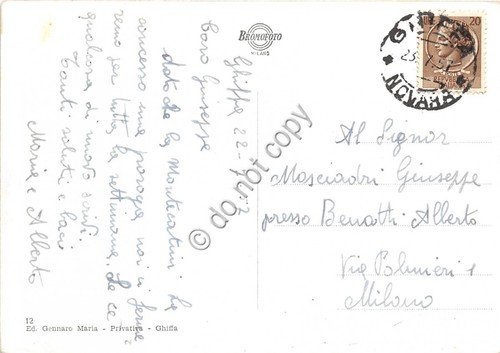 BROMOFOTO
MILANO
20
GHIFFA
NOVARA
Ghiffa 22-7-
Caro Giuseppe
dato che la Montecatini ha
concesso una proroga noi ci ferme-
remo per tutta la settimana. Se c'è
qualcosa di nuovo scrivi.
Tanti saluti e baci
Maria e Alberto
Al Signor
Mosciadri Giuseppe
presso Benatti Alberto
Via Palmieri 1
Milano
12
Ed. Gennaro Maria - Privativa - Ghiffa
do not copy